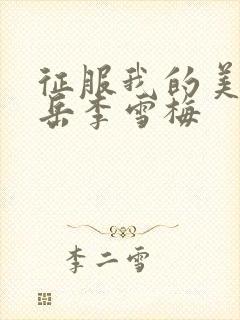 征服我的美
岳李雪梅
李二雪